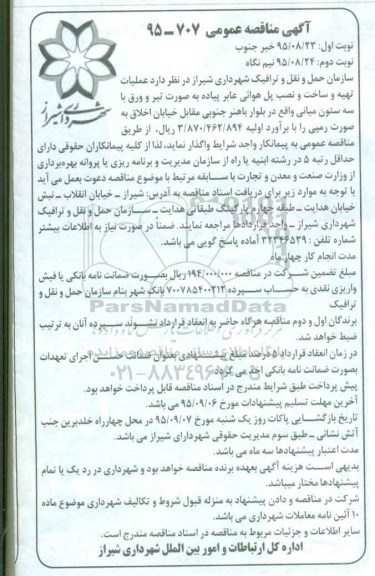 آگهی مناقصه عمومی ۷۰۷ ــ ۹۵
نوبت اول: ۹۵/۰۸/۲۳ خبر جنوب
نوبت دوم: ۹۵/۰۸/۲۴ نیم نگاه
شهرداری شیراز
سازمان حمل و نقل و ترافیک شهرداری شیراز در نظر دارد عملیات
تهیه و ساخت و نصب پل هوائی عابر پیاده به صورت تیر و ورق با
سه ستون میانی واقع در بلوار باهنر جنوبی مقابل خیابان اخلاق به
صورت زمیی را با برآورد اولیه ۳/۸۷۰/۴۶۲/۸۹۴ ریال، از طریق
مناقصه عمومی به پیمانکار واجد شرایط واگذار نماید، لذا از کلیه پیمانکاران حقوقی دارای
حداقل رتبه ۵ در رشته ابنیه یا راه از سازمان مدیریت و برنامه ریزی یا پروانه بهره‌برداری
از وزارت صنعت و معدن و تجارت با سابقه مرتبط با موضوع مناقصه دعوت بعمل می آید
با توجه به موارد زیر برای دریافت اسناد مناقصه به آدرس: شیراز ــ خیابان انقلاب ــ نبش
خیابان هدایت ــ طبقه چهارم پارکینگ طبقاتی هدایت ــ سازمان حمل و نقل و ترافیک
شهرداری شیراز ــ واحد قراردادها مراجعه نمایند. ضمناً در صورت نیاز به اطلاعات بیشتر
شماره تلفن : ۳۲۳۴۶۵۳۹ آماده پاسخ گویی می باشد.
مدت انجام کار چهار ماه
مبلغ تضمین شرکت در مناقصه ۱۹۴/۰۰۰/۰۰۰ ریال بصورت ضمانت نامه بانکی یا فیش
واریزی نقدی به حساب سپرده ۷۰۰۷۸۵۴۰۰۲۱۲ بانک شهر بنام سازمان حمل و نقل و
ترافیک
برندگان اول و دوم مناقصه هرگاه حاضر به انعقاد قرارداد نشوند سپرده آنان به ترتیب
ضبط خواهد شد.
در زمان انعقاد قرارداد ۵ درصد مبلغ پیشنهادی بعنوان ضمانت حسن اجرای تعهدات
بصورت ضمانت نامه بانکی اخذ می گردد.
پیش پرداخت طبق شرایط مندرج در اسناد مناقصه قابل پرداخت خواهد بود.
آخرین مهلت تسلیم پیشنهادات مورخ ۹۵/۰۹/۰۶ می باشد.
تاریخ بازگشایی پاکات روز یک شنبه مورخ ۹۵/۰۹/۰۷ در محل چهارراه خلدبرین جنب
آتش نشانی ــ طبق سوم مدیریت حقوقی شهرداری شیراز می باشد.
مدت اعتبار پیشنهادها سه ماه می باشد.
بدیهی است هزینه آگهی بعهده برنده مناقصه خواهد بود و شهرداری در رد یک یا تمام
پیشنهادها مختار میباشد.
شرکت در مناقصه و دادن پیشنهاد به منزله قبول شروط و تکالیف شهرداری موضوع ماده
۱۰ آئین نامه معاملات شهرداری می باشد.
سایر اطلاعات و جزئیات مربوط به مناقصه در اسناد مناقصه مندرج است.
اداره کل ارتباطات و امور بین الملل شهرداری شیراز
ParsNamadData